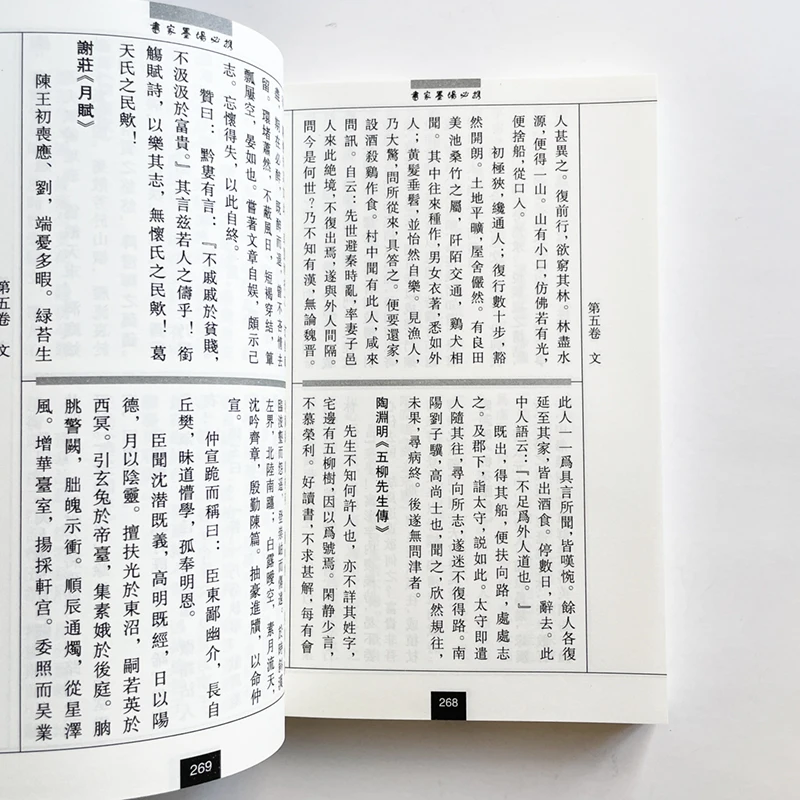 書家墨場必携
第五卷　文
人甚異之。復前行，欲窮其林。林盡水
源，便得一山。山有小口，仿佛若有光，
便捨船，從口人。
初極狹，纔通人；復行數十步，豁
然開朗。土地平曠，屋舍儼然。有良田
美池桑竹之屬，阡陌交通，鷄犬相
聞。其中往來種作，男女衣著，悉如外
人；黃髮垂髫，並怡然自樂。見漁人，
乃大驚，問所從來，具答之。便要還家，
設酒殺鷄作食。村中聞有此人，咸來
問訊。自云：先世避秦時亂，率妻子邑
人來此絕境，不復出焉，遂與外人間隔。
問今是何世？乃不知有漢，無論魏晉。
此人一一爲具言所聞，皆嘆惋。餘人各復
延至其家，皆出酒食。停數日，辭去。此
中人語云：『不足爲外人道也。』
既出，得其船，便扶向路，處處志
之。及郡下，詣太守，説如此。太守即遣
人隨其往，尋向所志，遂迷不復得路。南
陽劉子驥，高尚士也，聞之，欣然規往，
未果，尋病終。後遂無問津者。
陶淵明《五柳先生傳》
先生不知何許人也，亦不詳其姓字，
宅邊有五柳樹，因以爲號焉。閑静少言，
不慕榮利。好讀書，不求甚解，每有會
268
書家墨場必携
期在必醉，既醉而退，曾不吝情去
留。環堵蕭然，不蔽風日，短褐穿結，簞
瓢屢空，晏如也。嘗著文章自娱，頗示己
志。忘懷得失，以此自終。
贊曰：黔婁有言：『不戚戚於貧賤，
不汲汲於富貴。』其言兹若人之儔乎！銜
觴賦詩，以樂其志，無懷氏之民歟！葛
天氏之民歟！
謝莊《月賦》
陳王初喪應、劉，端憂多暇。緑苔生
左界，北陸南躔；白露曖空，素月流天，
沈吟齊章，殷勤陳篇。抽豪進牘，以命仲
宣。
仲宣跪而稱曰：臣東鄙幽介，長自
丘樊，昧道懵學，孤奉明恩。
臣聞沈潜既義，高明既經，日以陽
德，月以陰靈。擅扶光於東沼，嗣若英於
西冥。引玄兔於帝臺，集素娥於後庭。朒
朓警闕，朏魄示衝。順辰通燭，從星澤
風。增華臺室，揚採軒宫。委照而吴業
第五卷　文
269